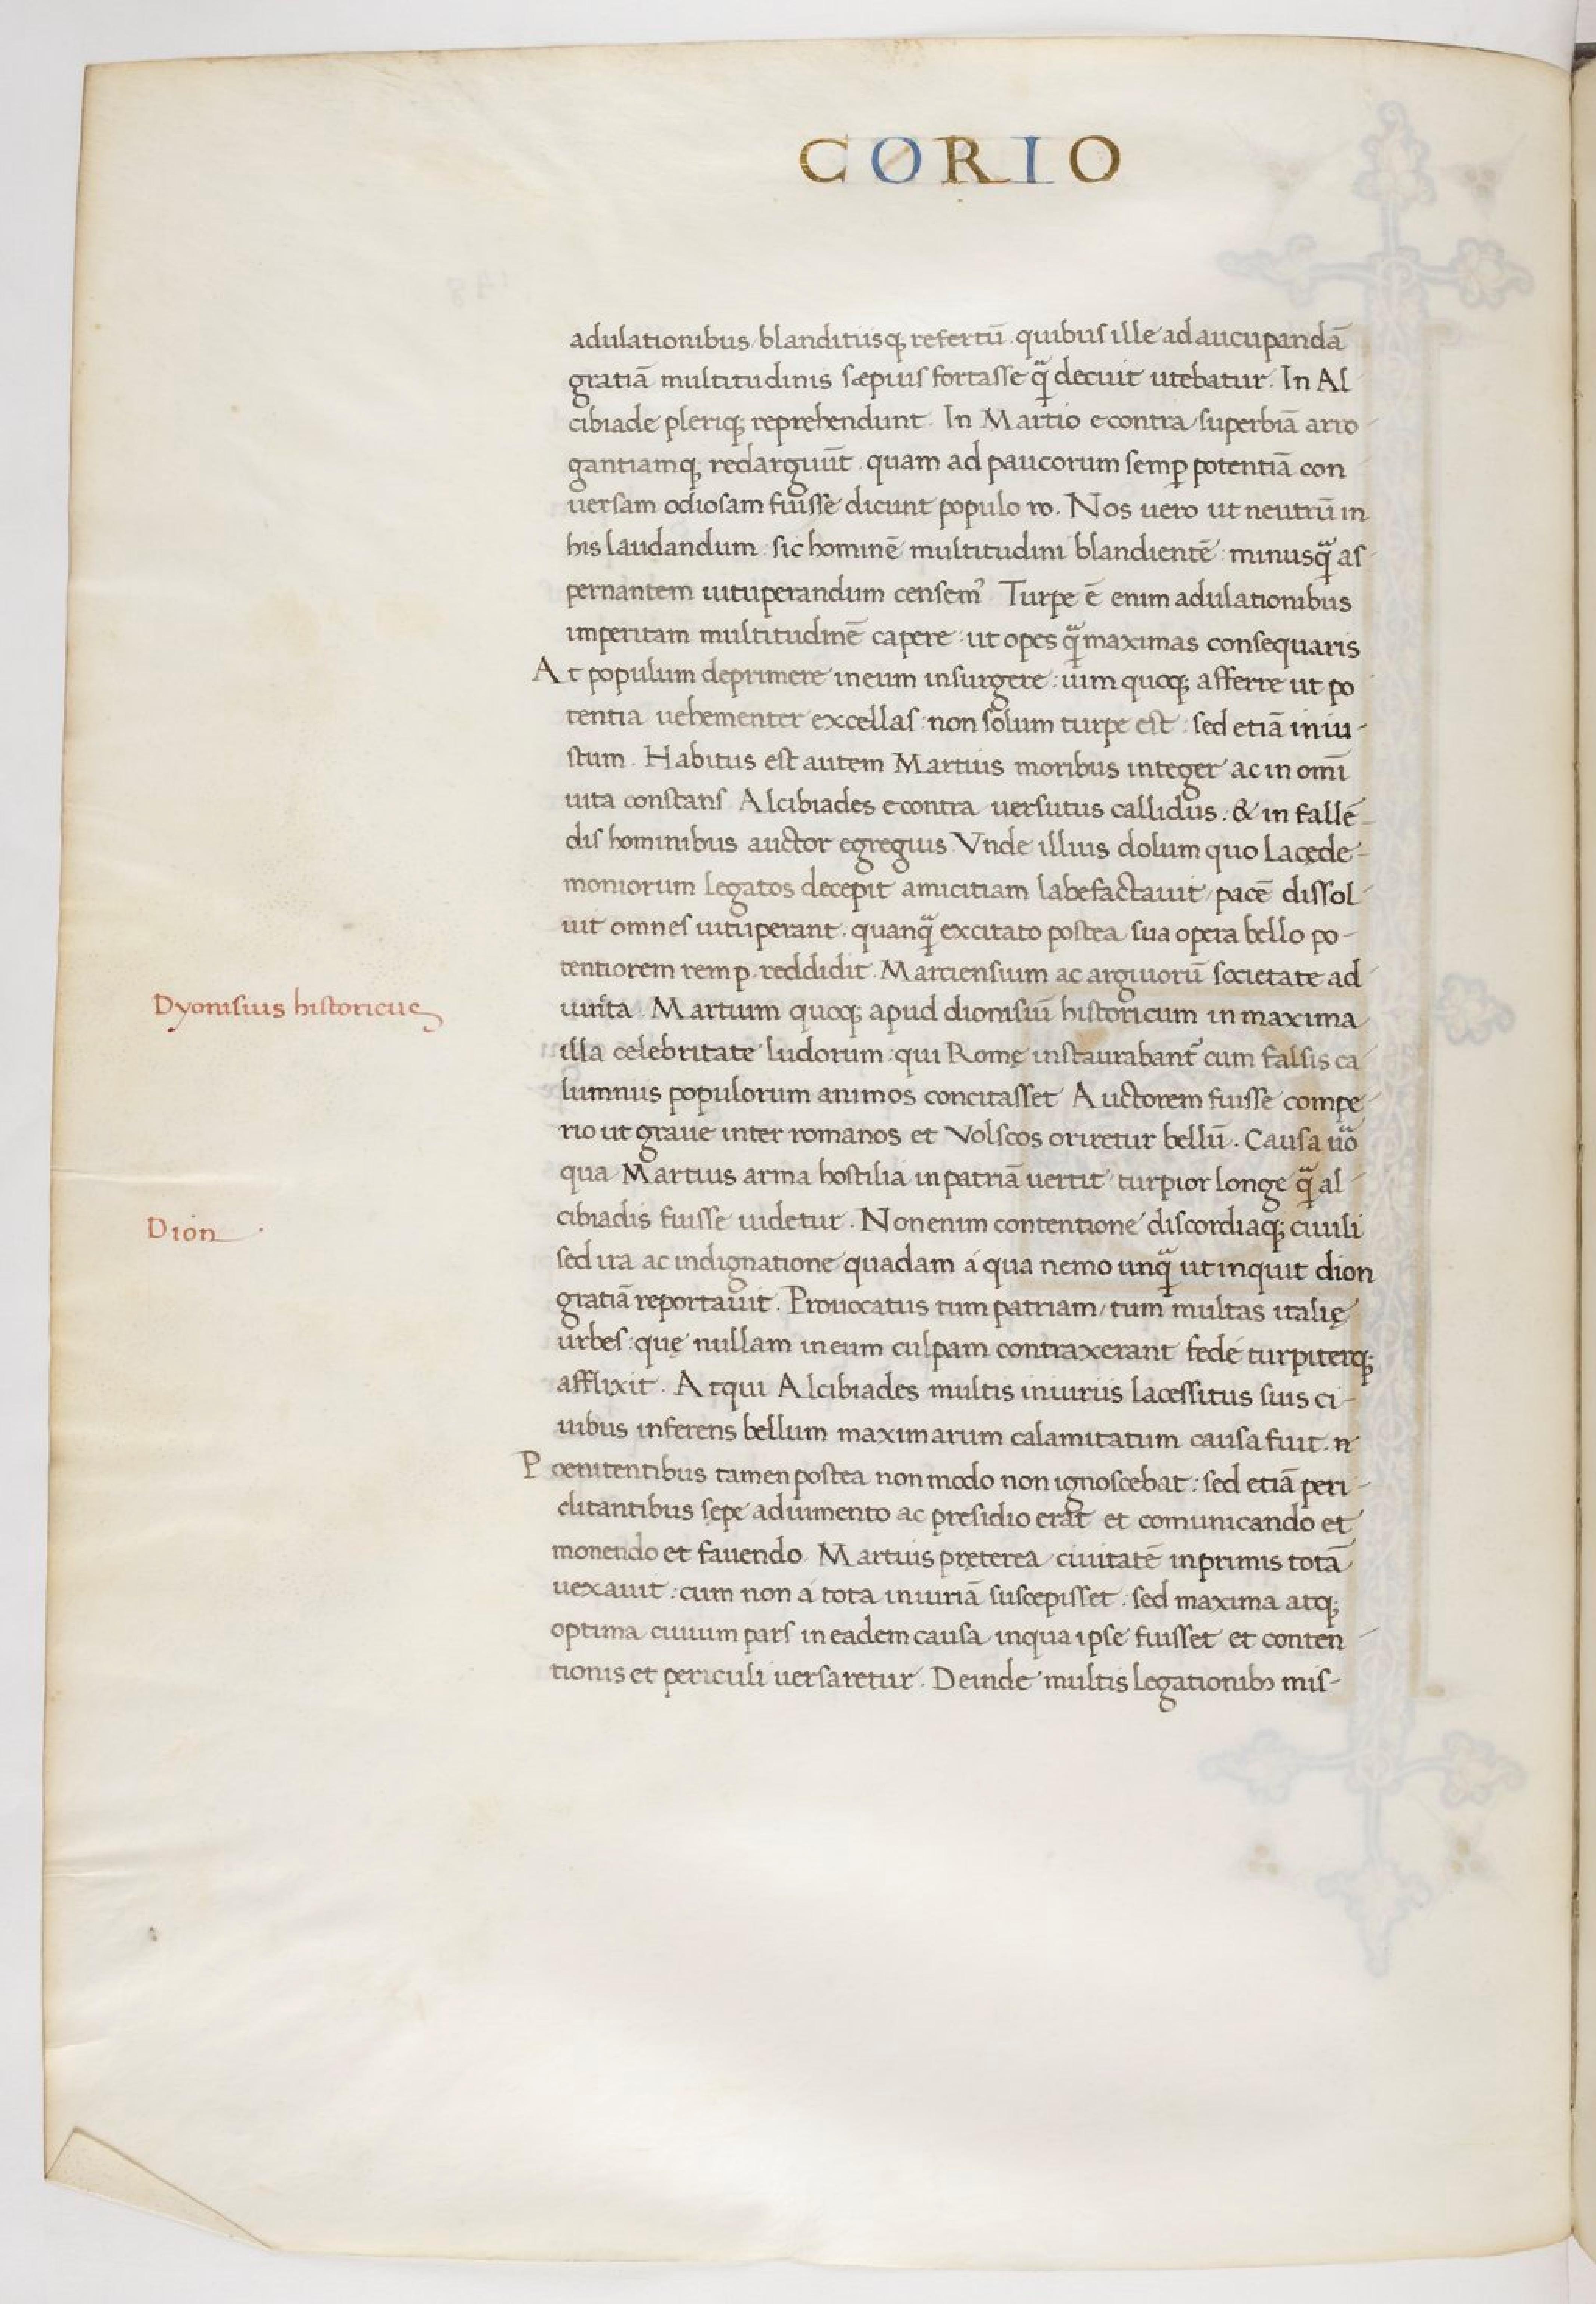 CORIO
adulationibus blanditiisq; refertū. quibus ille ad aucupandā
gratiā multitudinis sæpius fortasse q̄ decuit utebatur. In Al
cibiade pleriq; reprehendunt. In Martio econtra superbiā arro-
gantiamq; redarguūt. quam ad paucorum semp̄ potentiā con
uersam odiosam fuisse dicunt populo ro. Nos uero ut neutrū in
his laudandum sic hominē multitudini blandientē minusq̄ as-
pernantem uituperandum censem⁹ Turpe ē enim adulationibus
imperitam multitudinē capere ut opes q̄ maximas consequaris
At populum deprimere in eum insurgere: uim quoq; afferre ut po
tentia uehementer excellas: non solum turpe est: sed etiā iniu-
stum. Habitus est autem Martius moribus integer ac in omī
uita constans Alcibiades econtra uersutus callidus. & in fallē-
dis hominibus auctor egregius Vnde illius dolum quo Lacede-
moniorum legatos decepit amicitiam labefactauit, pacē dissol-
uit omnes uituperant. quanq̄ excitato postea sua opera bello po-
tentiorem rem p. reddidit. Martiensium ac argiuorū societate ad
Dyonisius historicus
uincta. Martium quoq; apud dionisiū historicum in maxima
illa celebritate ludorum: qui Romę instaurabant᷑ cum falsis ca
lumniis populorum animos concitasset Auctorem fuisse compe
rio ut graue inter romanos et Volscos oriretur bellū. Causa uō
qua Martius arma hostilia in patriā uertit turpior longe q̄ al
Dion
cibiadis fuisse uidetur. Non enim contentione discordiaq; ciuili
sed ira ac indignatione quadam á qua nemo unq̄ ut inquit dion
gratiā reportauit. Prouocatus tum patriam, tum multas italię
urbes: quę nullam in eum culpam contraxerant fede turpiterq;
afflixit. Atqui Alcibiades multis iniuriis lacessitus suis ci-
uibus inferens bellum maximarum calamitatum causa fuit.
Poenitentibus tamen postea non modo non ignoscebat: sed etiā peri-
clitantibus sępe adiumento ac presidio erat et comunicando et
monendo et fauendo. Martius pręterea ciuitatē in primis totā
uexauit: cum non á tota iniuriā suscepisset: sed maxima atq;
optima ciuium pars in eadem causa in qua ipse fuisset et conten-
tionis et periculi uersaretur. Deinde multis legationib⁹ mis-